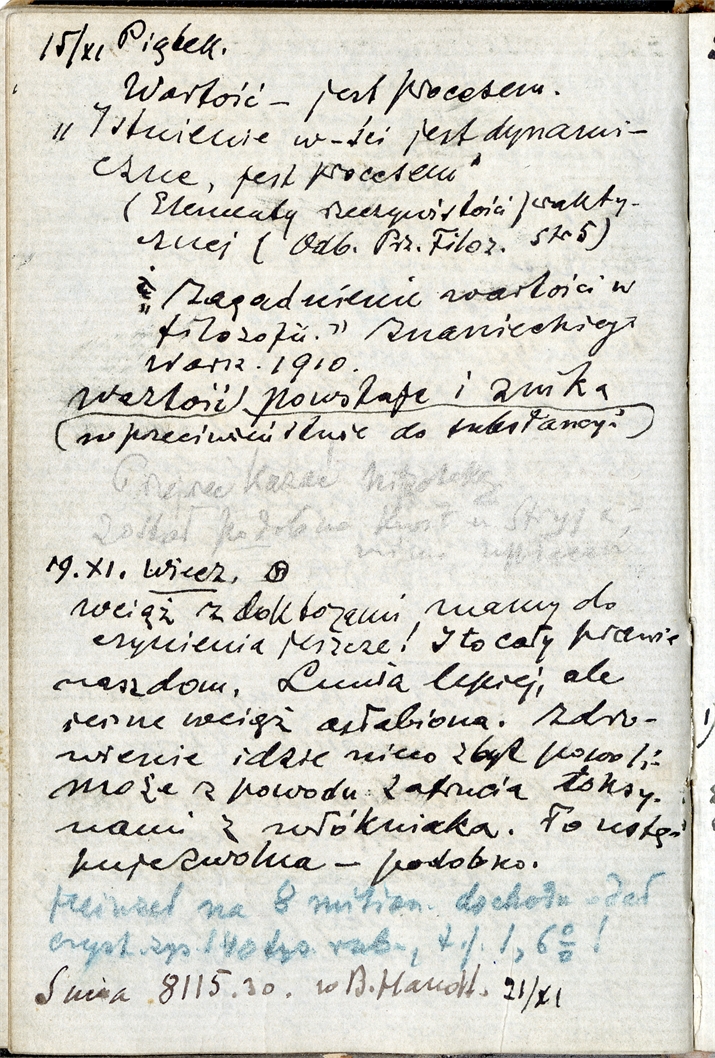 15/XI Piątek.
Wartość – jest procesem.
„Istnienie w-ści jest dynami-
czne, jest procesem"
(Elementy rzeczywistości prakty-
cznej (Odb. Prz. Filoz. str 5)
„Zagadnienie wartości w
filozofii." Znanieckiego
Warsz. 1910.
wartość powstaje i znika
(w przeciwieństwie do substancyi)
został podobno
19.XI. Wiecz.
wciąż z doktorami mamy do
czynienia jeszcze! I to cały prawie
nasz dom. Lunia lepiej, ale
wciąż osłabiona. Zdro-
wienie idzie nieco zbyt powoli
może z powodu zatrucia toksy-
nami z włókniaka. To ustę-
puje zwolna – podobno.
na 8 milion. dochodu dał
czyst. zys. 140 tys. rub., t.j. 1,6%!
8115.30. w B. Handl. 21/XI